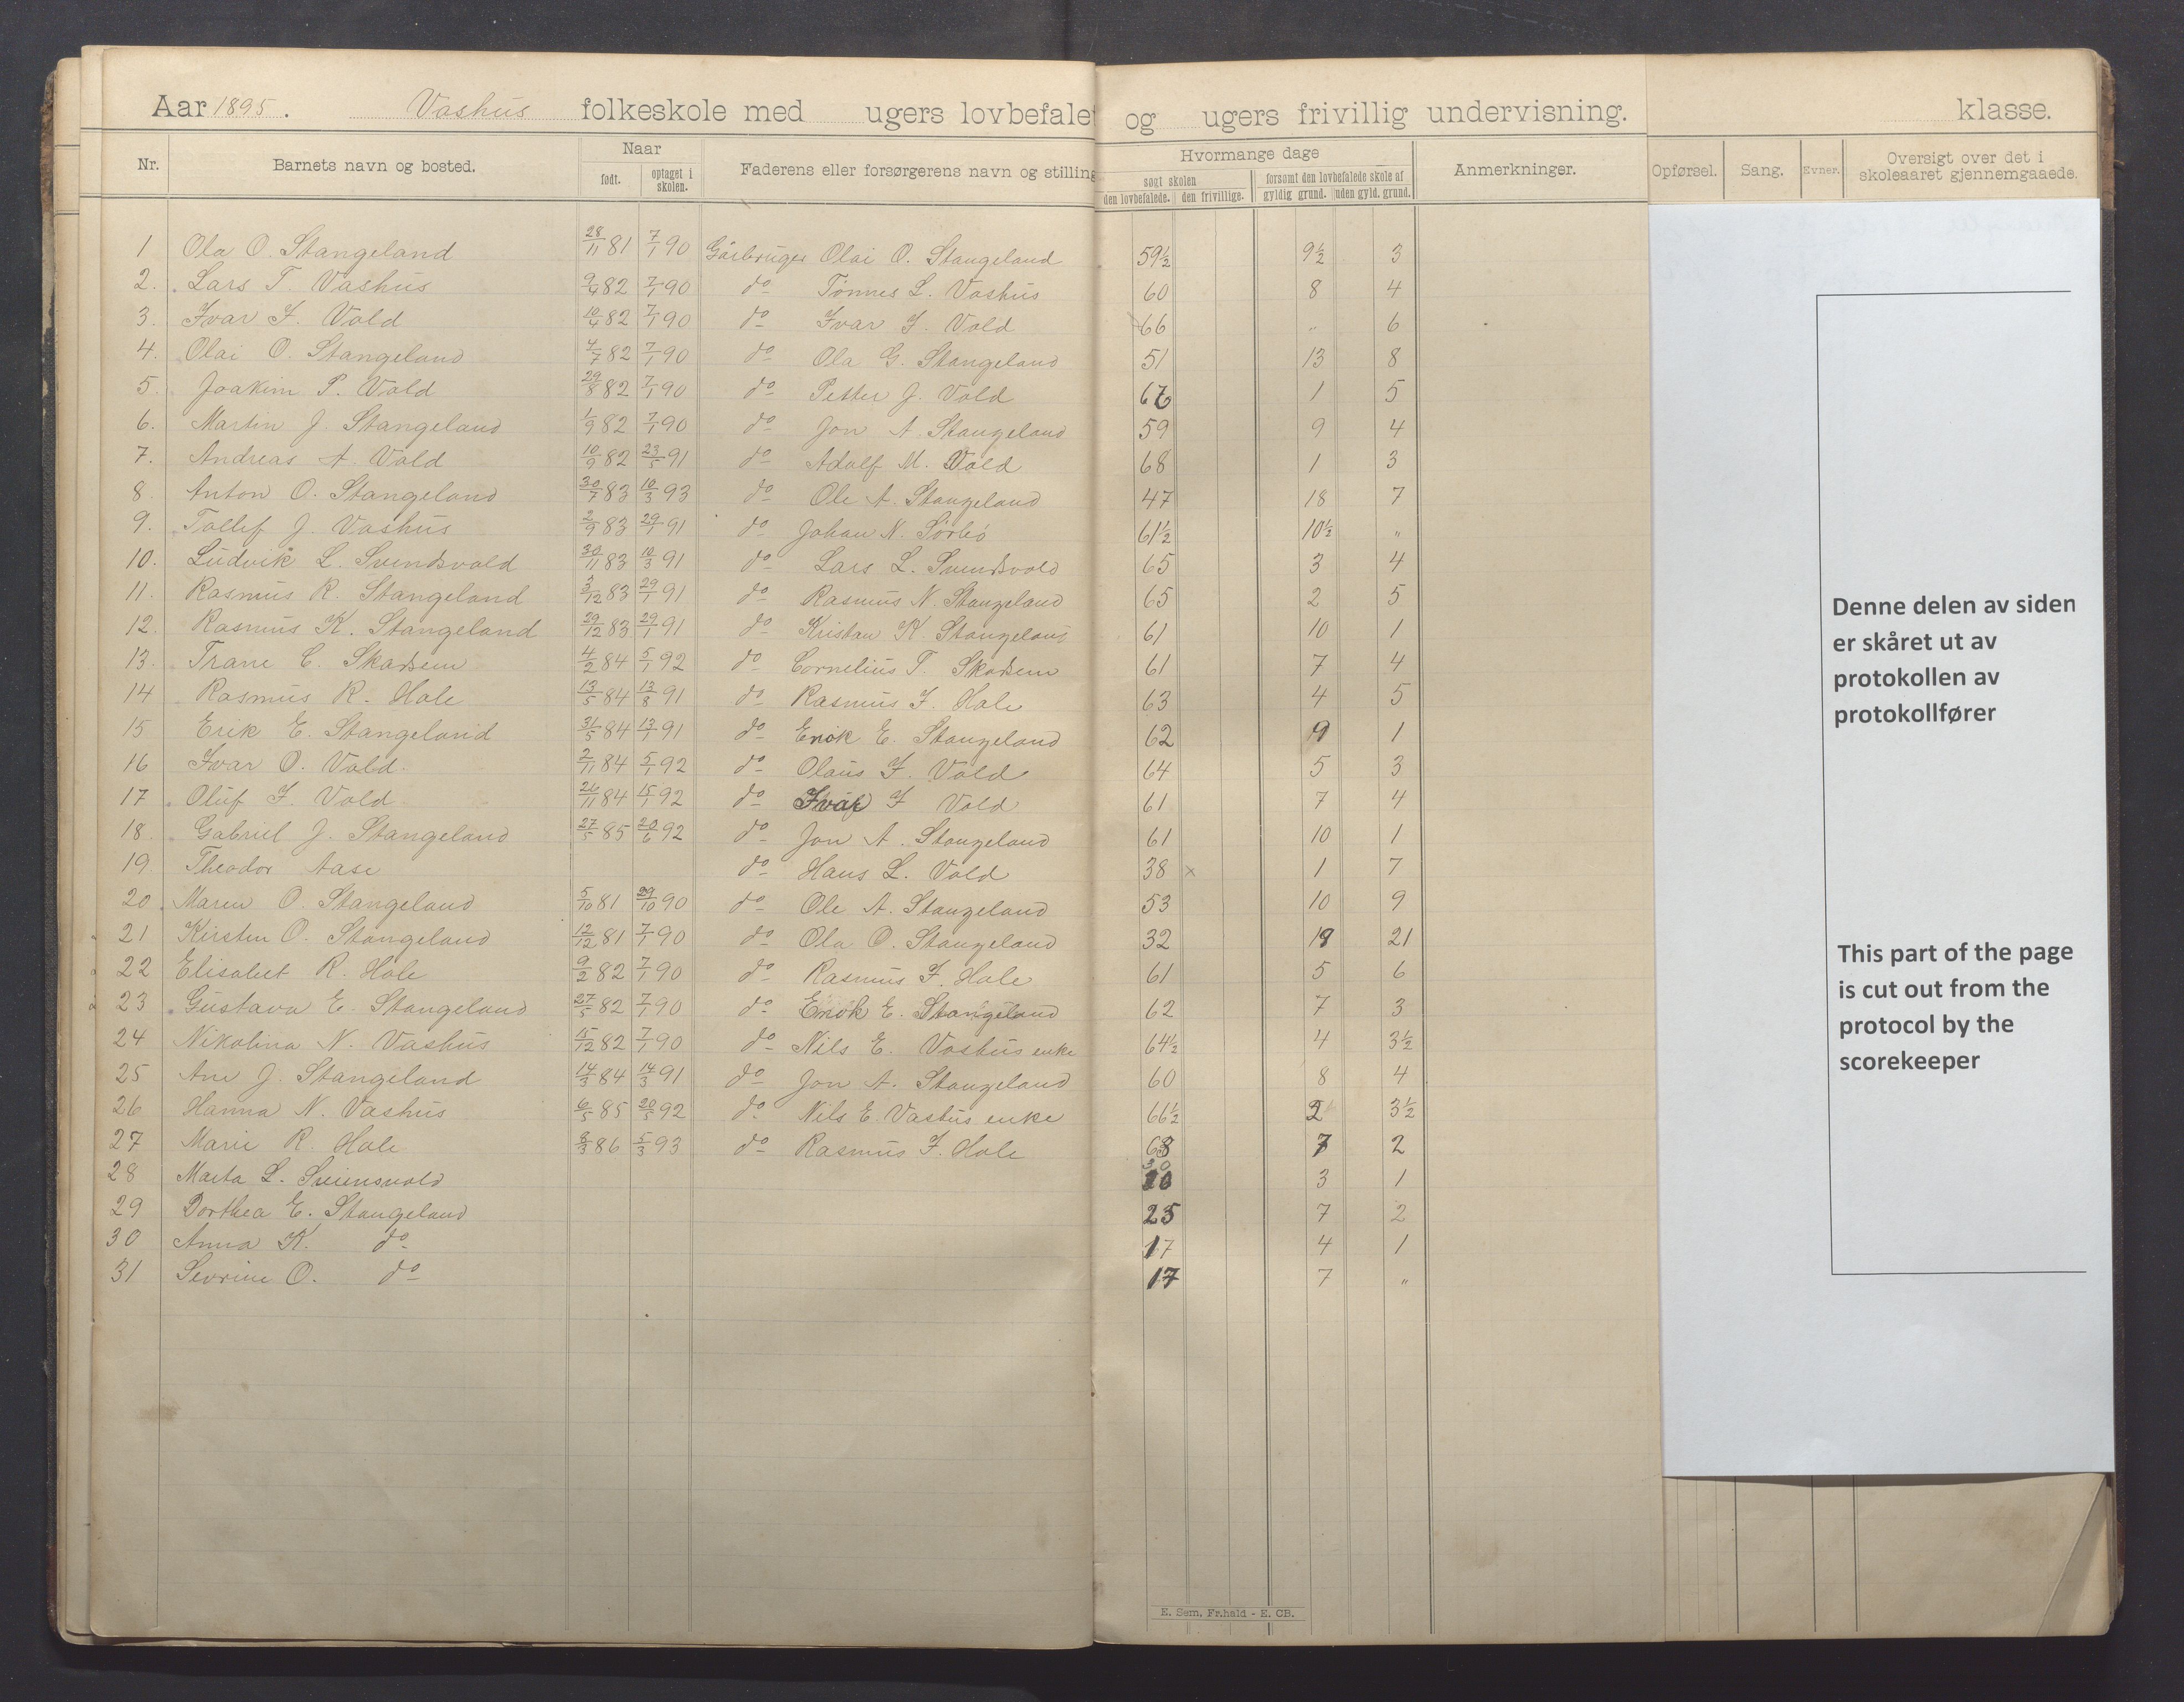 Aar 1895. Vashus folkeskole med ugers lovbefalet og ugers frivillig undervisning. klasse.
Nr. Barnets navn og bosted. Naar Faderens eller forsørgerens navn og stilling Hvormange dage Anmerkninger. Opførsel. Sang. Evner. Oversigt over det i skoleaaret gjennemgaaede.
født. optaget i skolen. søgt skolen forsømt den lovbefalede skole af
den lovbefalede. den frivillige. gyldig grund. uden gyld. grund.
1 Ola O. Stangeland 28/11 81 7/1 90 Gårbruger Olai O. Stangeland 59½ 9½ 3
2. Lars T. Vashus 9/4 82 7/1 90 do Tønnes L. Vashus 60 8 4
3. Ivar I. Vold 10/4 82 7/1 90 do Ivar I. Vold 66 " 6
4. Olai O. Stangeland 4/7 82 7/1 90 do Ola G. Stangeland 51 13 8
5. Joakim P. Vold 29/8 82 7/1 90 do Petter J. Vold 67 1 5
6. Martin J. Stangeland 1/9 82 7/1 90 do Jon A. Stangeland 59 9 4
7. Andreas A. Vold 10/9 82 23/5 91 do Adolf M. Vold 68 1 3
8. Anton O. Stangeland 30/7 83 10/3 93 do Ole A. Stangeland 47 18 7
9. Tollef J. Vashus 2/9 83 29/1 91 do Johan N. Sørbø 61½ 10½ "
10. Ludvik L. Svendsvold 30/11 83 10/3 91 do Lars L. Svendsvold 65 3 4
11. Rasmus R. Stangeland 3/12 83 29/1 91 do Rasmus N. Stangeland 65 2 5
12. Rasmus K. Stangeland 29/12 83 29/1 91 do Kristan K. Stangeland 61 10 1
13. Trane C. Skadsem 4/2 84 5/1 92 do Cornelius T. Skadsem 61 7 4
14 Rasmus R. Hole 13/5 84 13/8 91 do Rasmus I. Hole 63 4 5
15 Erik E. Stangeland 31/5 84 13/1 91 do Enok E. Stangeland 62 9 1
16 Ivar O. Vold. 2/11 84 5/1 92 do Olaus I. Vold 64 5 3
17 Oluf I. Vold 26/11 84 15/1 92 do Ivar I Vold 61 7 4
18. Gabriel J. Stangeland 27/5 85 20/6 92 do Jon A. Stangeland 61 10 1
19. Theodor Aase do Hans L. Vold 38 x 1 7
20 Maren O. Stangeland 5/10 81 29/10 90 do Ole A. Stangeland 53 10 9
21 Kirsten O. Stangeland 12/12 81 7/1 90 do Ola O. Stangeland 32 19 21
22 Elisabet R. Hole 9/2 82 7/1 90 do Rasmus I. Hole 61 5 6
23 Gustava E. Stangeland 27/5 82 7/1 90 do Enok E. Stangeland 62 7 3
24 Nikolina N. Vashus 15/12 82 7/1 90 do Nils E. Vashus enke 64½ 4 3½
25 Ane J. Stangeland 14/3 84 14/3 91 do Jon A. Stangeland 60 8 4
26 Hanna N. Vashus 6/5 85 20/5 92 do Nils E. Vashus enke 66½ 2 3½
27 Marie R. Hole 8/3 86 5/3 93 do Rasmus I. Hole 63 7 2
28 Marta L. Svensvold 30 3 1
29 Dorthea E. Stangeland 25 7 2
30 Anna K. do 17 4 1
31 Sevrine O. do 17 7 "
E. Sem, Fr.hald - E. CB.
Denne delen av siden
er skåret ut av
protokollen av
protokollfører
This part of the page
is cut out from the
protocol by the
scorekeeper